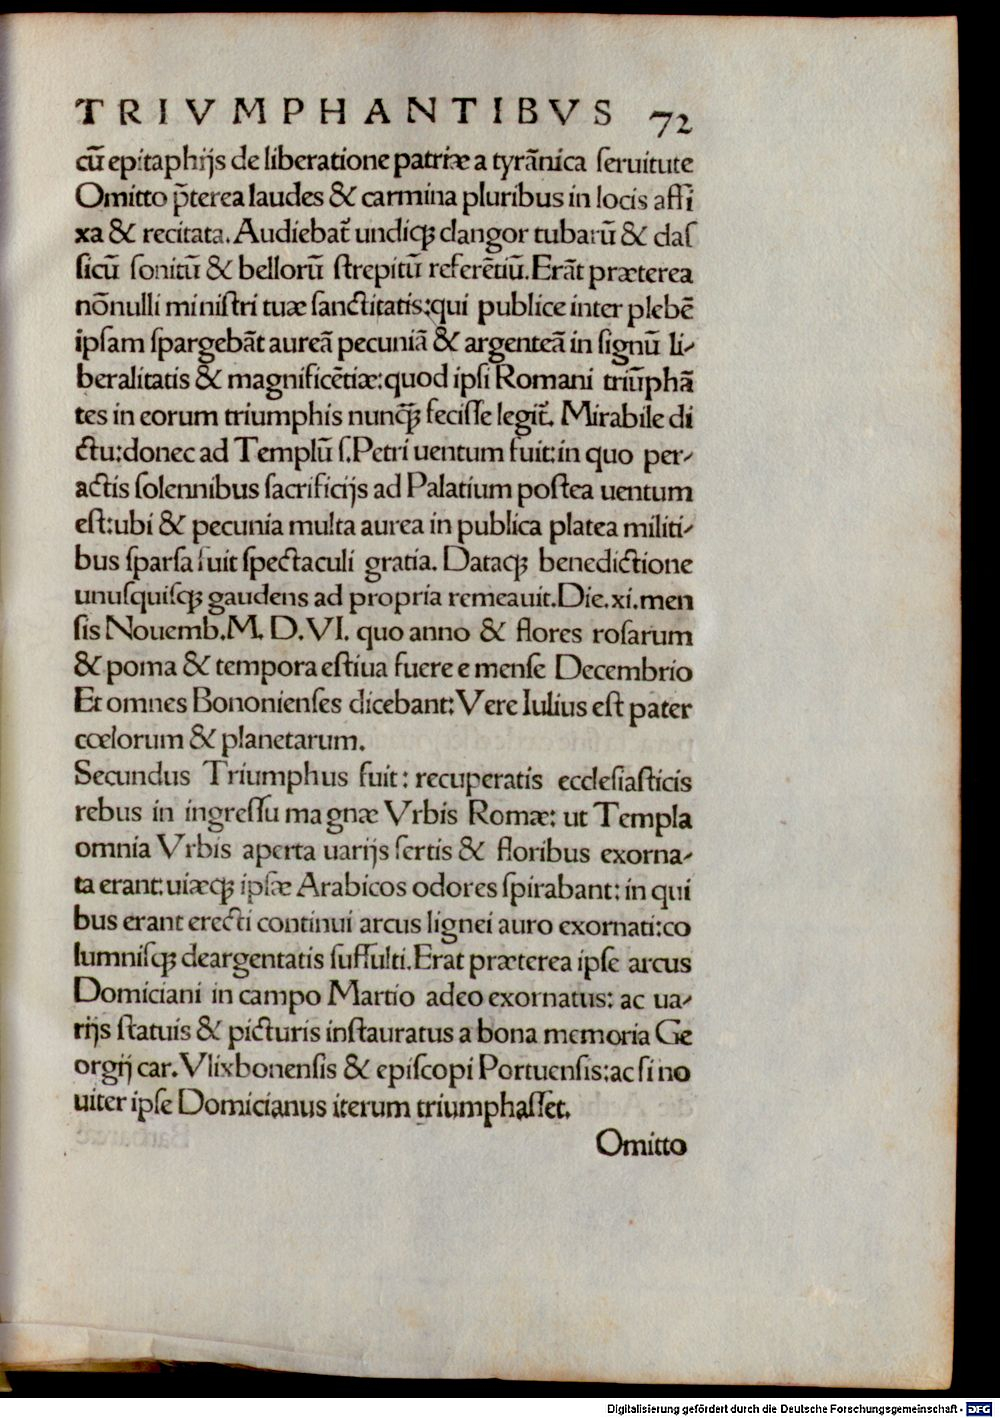 TRIVMPHANTIBVS 72
cū epitaphijs de liberatione patriæ a tyrãnica ſeruitute
Omitto p̄terea laudes & carmina pluribus in locis affi
xa & recitata. Audiebat̃ undiqꝫ clangor tubarū & claſ
ſicū ſonitū & bellorū ſtrepitū referētiū. Erãt præterea
nõnulli miniſtri tuæ ſanctitatis:qui publice inter plebē
ipſam ſpargebãt aureã pecuniã & argenteã in ſignū li⸗
beralitatis & magnificētiæ:quod ipſi Romani triūphã
tes in eorum triumphis nunq̃ꝫ feciſſe legit̃. Mirabile di
ctu:donec ad Templū ſ.Petri uentum fuit:in quo per⸗
actis ſolennibus ſacrificijs ad Palatium poſtea uentum
eſt:ubi & pecunia multa aurea in publica platea militi⸗
bus ſparſa fuit ſpectaculi gratia. Dataqꝫ benedictione
unuſquiſqꝫ gaudens ad propria remeauit.Die.xi.men
ſis Nouemb.M. D.VI. quo anno & flores roſarum
& poma & tempora eſtiua fuere e menſe Decembrio
Et omnes Bononienſes dicebant:Vere Iulius eſt pater
cœlorum & planetarum.
Secundus Triumphus fuit: recuperatis eccleſiaſticis
rebus in ingreſſu magnæ Vrbis Romæ: ut Templa
omnia Vrbis aperta uarijs ſertis & floribus exorna⸗
ta erant:uiæqꝫ ipſæ Arabicos odores ſpirabant: in qui
bus erant erecti continui arcus lignei auro exornati:co
lumniſqꝫ deargentatis ſuffulti.Erat præterea ipſe arcus
Domiciani in campo Martio adeo exornatus: ac ua⸗
rijs ſtatuis & picturis inſtauratus a bona memoria Ge
orgij car. Vlixbonenſis & epiſcopi Portuenſis:ac ſi no
uiter ipſe Domicianus iterum triumphaſſet.
Omitto
Digitalisierung gefördert durch die Deutsche Forschungsgemeinschaft - DFG